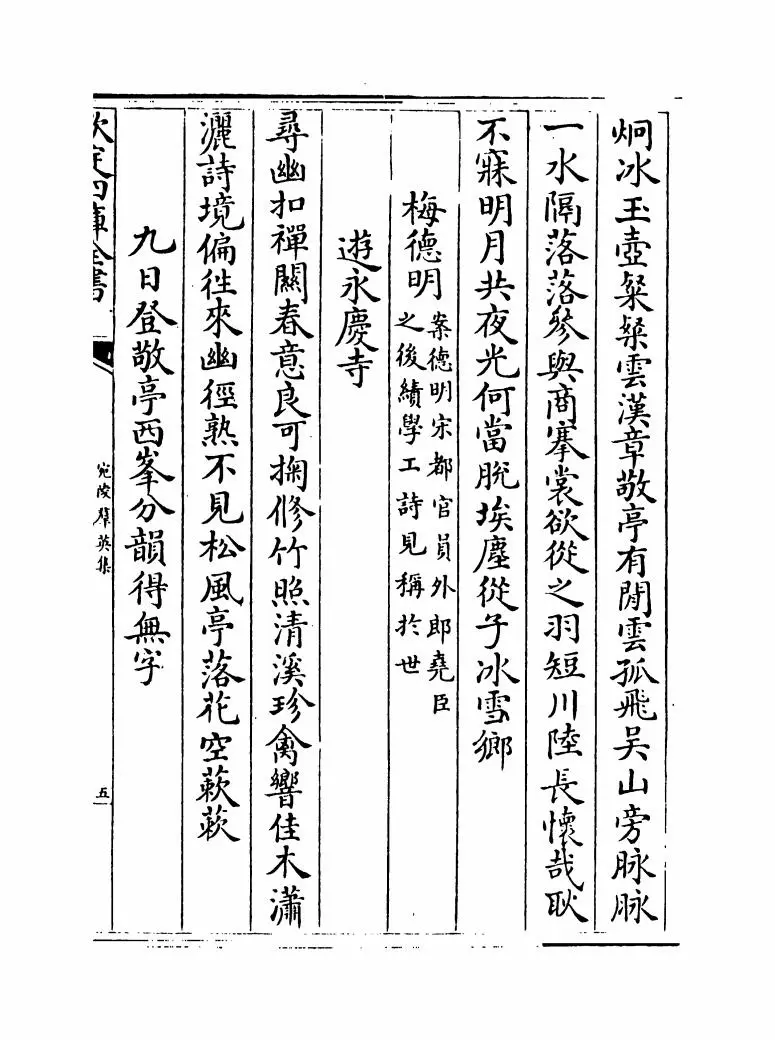 炯冰玉壺粲粲雲漢章敬亭有閒雲孤飛吴山旁脉脉
一水隔落落參與商搴裳欲從之羽短川陸長懷哉耿
不寐明月共夜光何當脫埃塵從子冰雪鄉
梅德明
案德明宋都官員外郎堯臣
之後績學工詩見稱於世
遊永慶寺
尋幽扣禪關春意良可掬修竹照清溪珍禽響佳木瀟
灑詩境偏往來幽徑熟不見松風亭落花空蔌蔌
九日登敬亭西峯分韻得無字
欽定四庫全書
宛陵羣英集
五